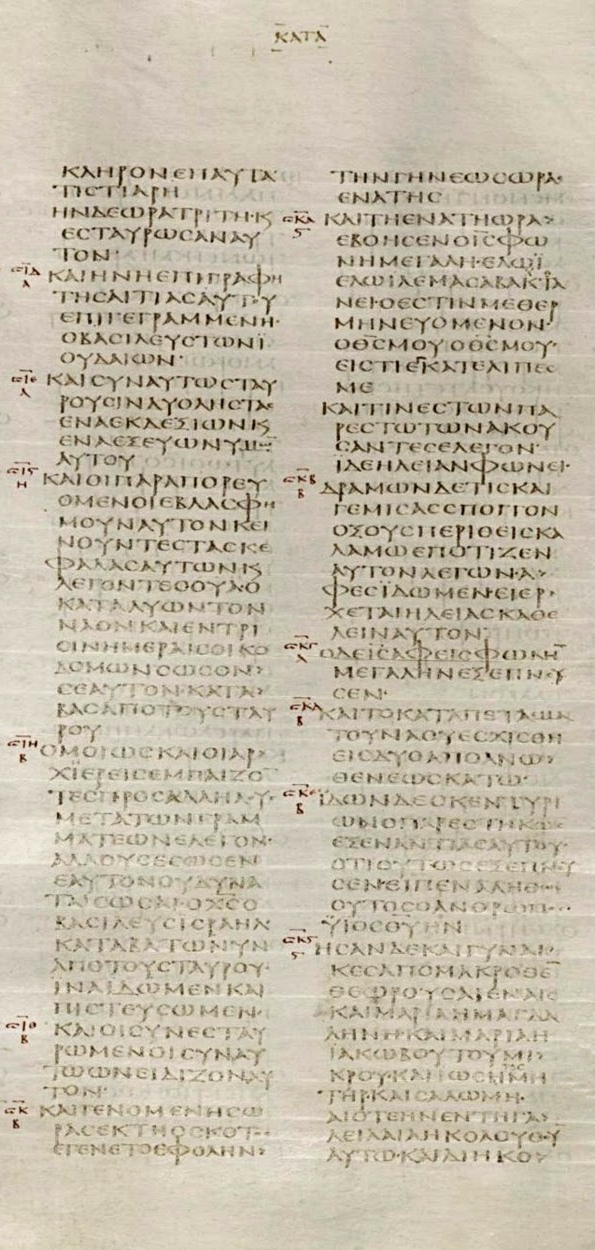 ΚΑΤΑ
ΚΛΗΡΟΝ ΕΠ ΑΥΤΑ
ΤΙΣ ΤΙ ΑΡΗ
ΗΝ ΔΕ ΩΡΑ ΤΡΙΤΗ Κ
ΕΣΤΑΥΡΩΣΑΝ ΑΥ
ΤΟΝ·
ΣΙΔ
Α
ΚΑΙ ΗΝ Η ΕΠΙΓΡΑΦΗ
ΤΗΣ ΑΙΤΙΑΣ ΑΥΤΟΥ
ΕΠΙΓΕΓΡΑΜΜΕΝΗ·
Ο ΒΑΣΙΛΕΥΣ ΤΩΝ Ϊ
ΟΥΔΑΙΩΝ·
ΣΙΕ
Α
ΚΑΙ ΣΥΝ ΑΥΤΩ ΣΤΑΥ
ΡΟΥΣΙΝ ΔΥΟ ΛΗΣΤΑΣ
ΕΝΑ ΕΚ ΔΕΞΙΩΝ Κ
ΕΝΑ ΕΞ ΕΥΩΝΥΜΩ
ΑΥΤΟΥ
ΣΙϚ
Η
ΚΑΙ ΟΙ ΠΑΡΑΠΟΡΕΥ
ΟΜΕΝΟΙ ΕΒΛΑΣΦΗ
ΜΟΥΝ ΑΥΤΟΝ ΚΕΙ
ΝΟΥΝΤΕΣ ΤΑΣ ΚΕ
ΦΑΛΑΣ ΑΥΤΩΝ Κ
ΛΕΓΟΝΤΕΣ ΟΥΑ Ο
ΚΑΤΑΛΥΩΝ ΤΟΝ
ΝΑΟΝ ΚΑΙ ΕΝ ΤΡΙ
ΣΙΝ ΗΜΕΡΑΙΣ ΟΙΚΟ
ΔΟΜΩΝ ΣΩΣΟΝ
ΣΕΑΥΤΟΝ ΚΑΤΑ
ΒΑΣ ΑΠΟ ΤΟΥ ΣΤΑΥ
ΡΟΥ
ΣΙΗ
Β
ΟΜΟΙΩΣ ΚΑΙ ΟΙ ΑΡ
ΧΪΕΡΕΙΣ ΕΜΠΑΙΖΟ
ΤΕΣ ΠΡΟΣ ΑΛΛΗΛΟΥΣ
ΜΕΤΑ ΤΩΝ ΓΡΑΜ
ΜΑΤΕΩΝ ΕΛΕΓΟΝ·
ΑΛΛΟΥΣ ΕΣΩΣΕΝ
ΕΑΥΤΟΝ ΟΥ ΔΥΝΑ
ΤΑΙ ΣΩΣΑΙ· Ο ΧΣ Ο
ΒΑΣΙΛΕΥΣ ΙΣΡΑΗΛ
ΚΑΤΑΒΑΤΩ ΝΥΝ
ΑΠΟ ΤΟΥ ΣΤΑΥΡΟΥ·
ΙΝΑ ΙΔΩΜΕΝ ΚΑΙ
ΠΙΣΤΕΥΣΩΜΕΝ·
ΣΙΘ
Β
ΚΑΙ ΟΙ ΣΥΝΕΣΤΑΥ
ΡΩΜΕΝΟΙ ΣΥΝ ΑΥ
ΤΩ ΩΝΕΙΔΙΖΟΝ ΑΥ
ΤΟΝ·
ΣΚ
Β
ΚΑΙ ΓΕΝΟΜΕΝΗΣ Ω
ΡΑΣ ΕΚΤΗΣ ΣΚΟΤΟΣ
ΕΓΕΝΕΤΟ ΕΦ ΟΛΗΝ
ΤΗΝ ΓΗΝ ΕΩΣ ΩΡΑΣ
ΕΝΑΤΗΣ
ΣΚΑ
Ϛ
ΚΑΙ ΤΗ ΕΝΑΤΗ ΩΡΑ
ΕΒΟΗΣΕΝ Ο ΙΣ ΦΩ
ΝΗ ΜΕΓΑΛΗ· ΕΛΩΪ
ΕΛΩΙ ΛΕΜΑ ΣΑΒΑΚΤΑ
ΝΕΙ· Ο ΕΣΤΙΝ ΜΕΘΕΡ
ΜΗΝΕΥΟΜΕΝΟΝ·
Ο ΘΣ ΜΟΥ Ο ΘΣ ΜΟΥ·
ΕΙΣ ΤΙ ΕΓΚΑΤΕΛΙΠΕΣ
ΜΕ
ΚΑΙ ΤΙΝΕΣ ΤΩΝ ΠΑ
ΡΕΣΤΩΤΩΝ ΑΚΟΥ
ΣΑΝΤΕΣ ΕΛΕΓΟΝ·
ΪΔΕ ΗΛΕΙΑΝ ΦΩΝΕΙ·
ΣΚΒ
Β
ΔΡΑΜΩΝ ΔΕ ΤΙΣ ΚΑΙ
ΓΕΜΙΣΑΣ ΣΠΟΓΓΟΝ
ΟΞΟΥΣ ΠΕΡΙΘΕΙΣ ΚΑ
ΛΑΜΩ ΕΠΟΤΙΖΕΝ
ΑΥΤΟΝ ΛΕΓΩΝ· Α
ΦΕΣ ΪΔΩΜΕΝ ΕΙ ΕΡ
ΧΕΤΑΙ ΗΛΕΙΑΣ ΚΑΘΕ
ΛΕΙΝ ΑΥΤΟΝ·
ΣΚΓ
Α
Ο ΔΕ ΙΣ ΑΦΕΙΣ ΦΩΝΗ
ΜΕΓΑΛΗΝ ΕΞΕΠΝΕΥ
ΣΕΝ·
ΣΚΔ
Β
ΚΑΙ ΤΟ ΚΑΤΑΠΕΤΑΣΜΑ
ΤΟΥ ΝΑΟΥ ΕΣΧΙΣΘΗ
ΕΙΣ ΔΥΟ ΑΠΟ ΑΝΩ
ΘΕΝ ΕΩΣ ΚΑΤΩ·
ΣΚΕ
Β
ΪΔΩΝ ΔΕ Ο ΚΕΝΤΥΡΙ
ΩΝ Ο ΠΑΡΕΣΤΗΚΩΣ
ΕΞ ΕΝΑΝΤΙΑΣ ΑΥΤΟΥ·
ΟΤΙ ΟΥΤΩΣ ΕΞΕΠΝΕΥ
ΣΕΝ· ΕΙΠΕΝ ΑΛΗΘΩΣ
ΟΥΤΟΣ Ο ΑΝΘΡΩΠΟΣ
ΥΙΟΣ ΘΥ ΗΝ
ΣΚϚ
Ϛ
ΗΣΑΝ ΔΕ ΚΑΙ ΓΥΝΑΙ
ΚΕΣ ΑΠΟ ΜΑΚΡΟΘΕ
ΘΕΩΡΟΥΣΑΙ ΕΝ ΑΙΣ
ΚΑΙ ΜΑΡΙΑ Η ΜΑΓΔΑ
ΛΗΝΗ ΚΑΙ ΜΑΡΙΑ Η
ΪΑΚΩΒΟΥ ΤΟΥ ΜΙ
ΚΡΟΥ ΚΑΙ ΙΩΣΗ ΜΗ
ΤΗΡ ΚΑΙ ΣΑΛΩΜΗ·
ΑΙ ΟΤΕ ΗΝ ΕΝ ΤΗ ΓΑ
ΛΕΙΛΑΙΑ ΗΚΟΛΟΥΘΟΥ
ΑΥΤΩ· ΚΑΙ ΔΙΗΚΟ